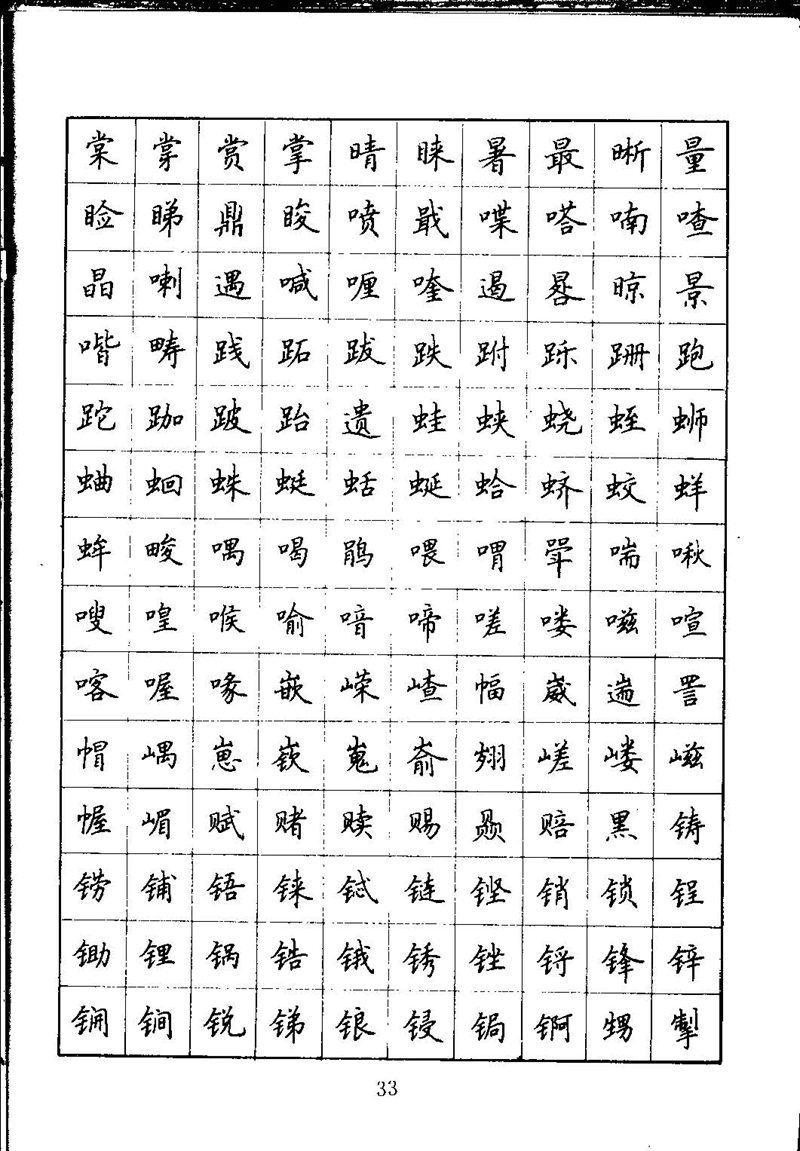 棠牚赏掌晴睐暑最晰量
睑睇鼎睃喷戢喋嗒喃喳
晶喇遇喊喱喹遏晷晾景
喈畴践跖跋跌跗跞跚跑
跎跏跛跆遗蛙蛱蛲蛭蛳
蛐蛔蛛蜓蛞蜒蛤蛴蛟蛘
蛑畯喁喝鹃喂喟斝喘啾
嗖喤喉喻喑啼嗟喽嗞喧
喀喔喙嵌嵘嵖幅崴遄詈
帽嵎崽嵚嵬嵛翙嵯嵝嵫
幄嵋赋赌赎赐赑赔黑铸
铹铺铻铼铽链铿销锁锃
锄锂锅锆锇锈锉锊锋锌
锎锏锐锑锒锓锔锕甥掣
33